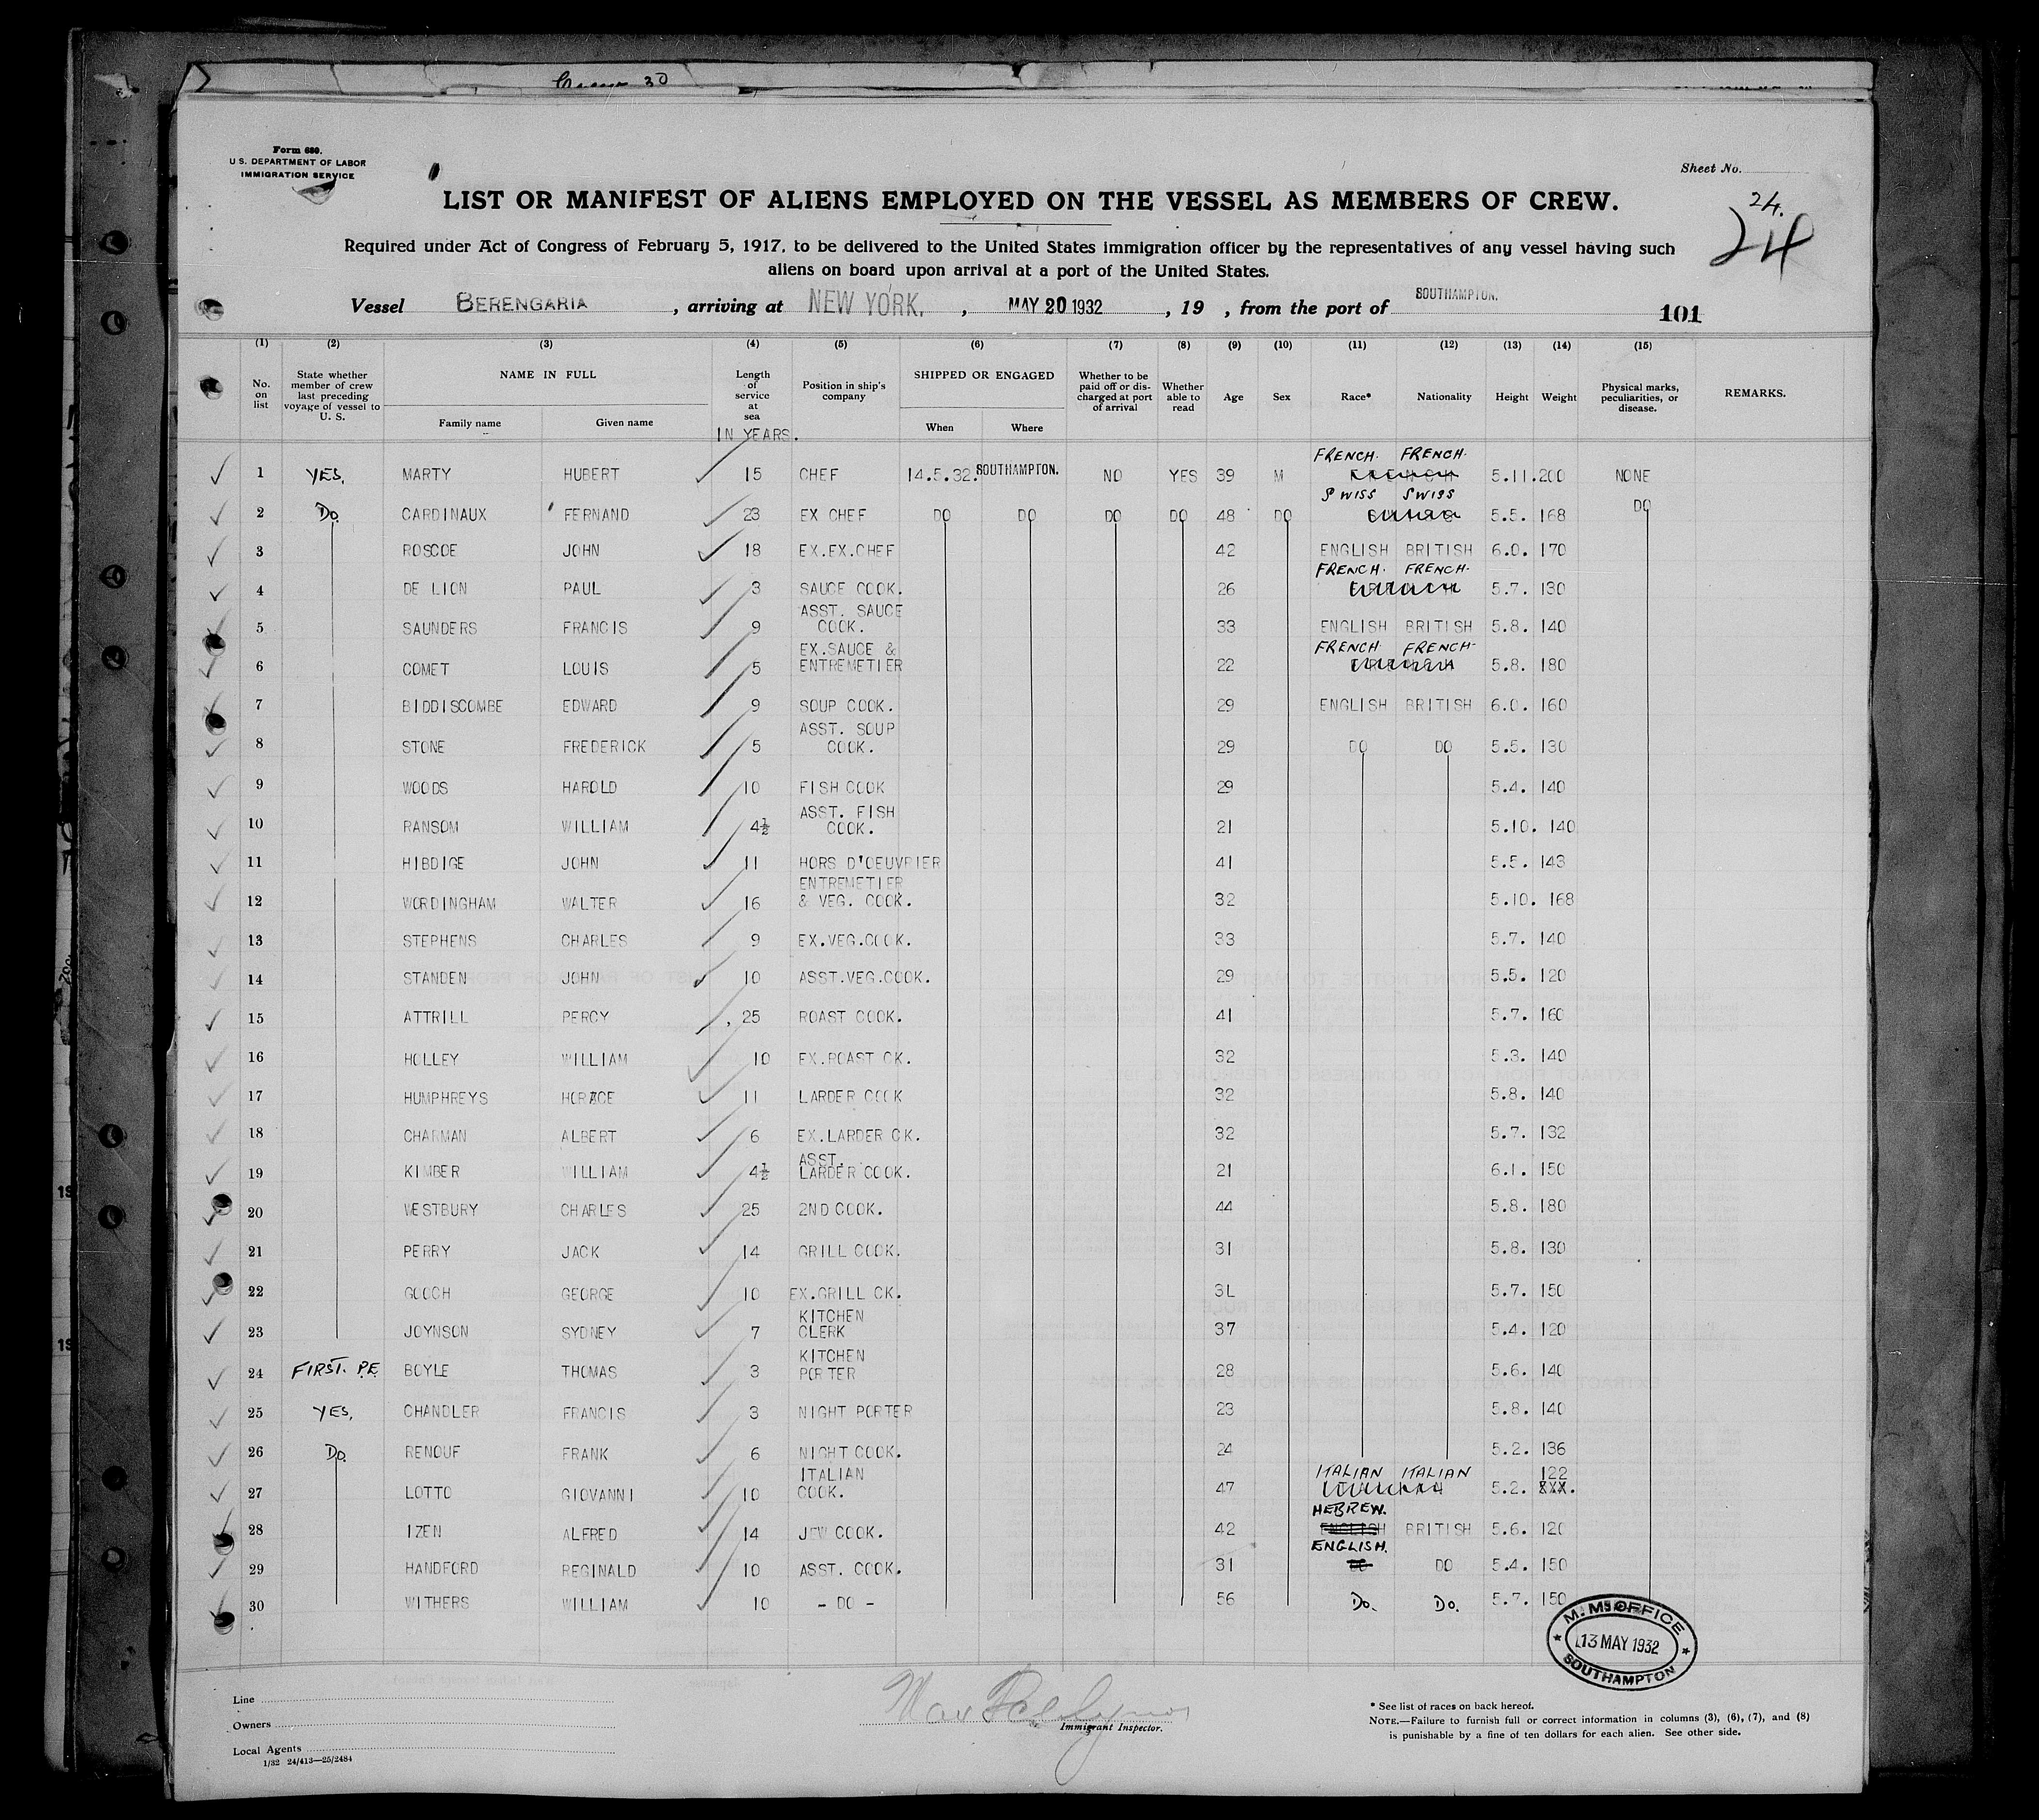 Crew 30
Form 680.
U.S. DEPARTMENT OF LABOR
IMMIGRATION SERVICE
Sheet No.
24.
24
LIST OR MANIFEST OF ALIENS EMPLOYED ON THE VESSEL AS MEMBERS OF CREW.
Required under Act of Congress of February 5, 1917, to be delivered to the United States immigration officer by the representatives of any vessel having such
aliens on board upon arrival at a port of the United States.
Vessel BERENGARIA , arriving at NEW YORK. , MAY 20 1932 , 19 , from the port of SOUTHAMPTON. 101
(1) (2) (3) (4) (5) (6) (7) (8) (9) (10) (11) (12) (13) (14) (15)
No. on list State whether member of crew last preceding voyage of vessel to U. S. NAME IN FULL Family name Given name Length of service at sea IN YEARS. Position in ship's company SHIPPED OR ENGAGED When Where Whether to be paid off or discharged at port of arrival Whether able to read Age Sex Race* Nationality Height Weight Physical marks, peculiarities, or disease. REMARKS.
1 YES. MARTY HUBERT 15 CHEF 14.5.32. SOUTHAMPTON. NO YES 39 M FRENCH. FRENCH. 5.11. 200 NONE
2 Do. CARDINAUX FERNAND 23 EX CHEF DO DO DO DO 48 DO SWISS SWISS 5.5. 168 DO
3 ROSCOE JOHN 18 EX.EX.CHEF 42 ENGLISH BRITISH 6.0. 170
4 DE LION PAUL 3 SAUCE COOK. 26 FRENCH. FRENCH. 5.7. 130
5 SAUNDERS FRANCIS 9 ASST. SAUCE COOK. 33 ENGLISH BRITISH 5.8. 140
6 COMET LOUIS 5 EX.SAUCE & ENTREMETIER 22 FRENCH. FRENCH. 5.8. 180
7 BIDDISCOMBE EDWARD 9 SOUP COOK. 29 ENGLISH BRITISH 6.0. 160
8 STONE FREDERICK 5 ASST. SOUP COOK. 29 DO DO 5.5. 130
9 WOODS HAROLD 10 FISH COOK 29 5.4. 140
10 RANSOM WILLIAM 4½ ASST. FISH COOK. 21 5.10. 140
11 HIBDIGE JOHN 11 HORS D'OEUVRIER 41 5.5. 143
12 WORDINGHAM WALTER 16 ENTREMETIER & VEG. COOK. 32 5.10. 168
13 STEPHENS CHARLES 9 EX.VEG.COOK. 33 5.7. 140
14 STANDEN JOHN 10 ASST.VEG.COOK. 29 5.5. 120
15 ATTRILL PERCY 25 ROAST COOK. 41 5.7. 160
16 HOLLEY WILLIAM 10 EX.ROAST CK. 32 5.3. 140
17 HUMPHREYS HORACE 11 LARDER COOK 32 5.8. 140
18 CHARMAN ALBERT 6 EX.LARDER CK. 32 5.7. 132
19 KIMBER WILLIAM 4½ ASST. LARDER COOK. 21 6.1. 150
20 WESTBURY CHARLES 25 2ND COOK. 44 5.8. 180
21 PERRY JACK 14 GRILL COOK. 31 5.8. 130
22 GOOCH GEORGE 10 EX.GRILL CK. 3L 5.7. 150
23 JOYNSON SYDNEY 7 KITCHEN CLERK 37 5.4. 120
24 FIRST. P.E. BOYLE THOMAS 3 KITCHEN PORTER 28 5.6. 140
25 YES. CHANDLER FRANCIS 3 NIGHT PORTER 23 5.8. 140
26 Do. RENOUF FRANK 6 NIGHT COOK. 24 5.2. 136
27 LOTTO GIOVANNI 10 ITALIAN COOK. 47 ITALIAN ITALIAN 5.2. 122 XXX.
28 IZEN ALFRED 14 JEW COOK. 42 HEBREW. ENGLISH BRITISH 5.6. 120
29 HANDFORD REGINALD 10 ASST. COOK. 31 ENGLISH. DO DO 5.4. 150
30 WITHERS WILLIAM 10 - DO - 56 Do. Do. 5.7. 150
M. M'S OFFICE
13 MAY 1932
SOUTHAMPTON
Line
Owners
Local Agents
1/32 24/413—25/2484
Immigrant Inspector.
* See list of races on back hereof.
NOTE.—Failure to furnish full or correct information in columns (3), (6), (7), and (8)
is punishable by a fine of ten dollars for each alien. See other side.